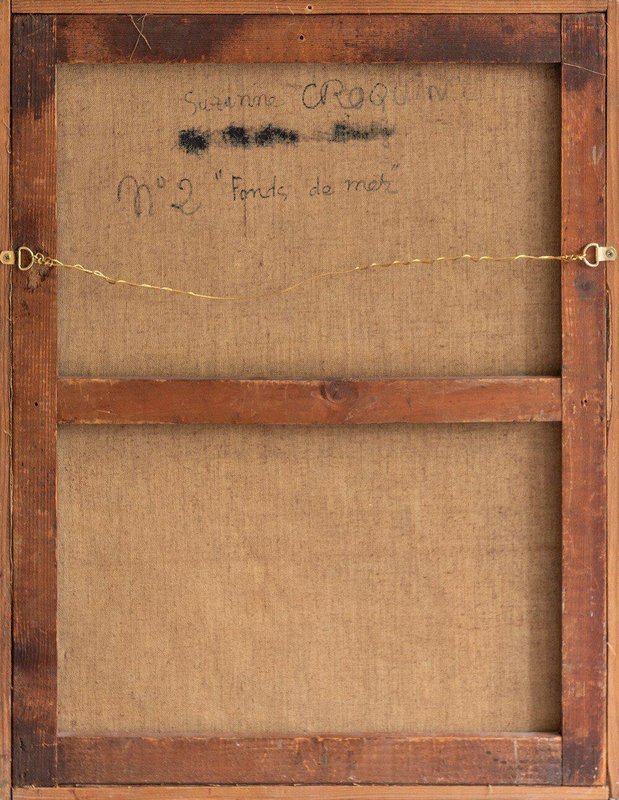 Suzanne CROQUIN
N° 2 "Fonds de mer"